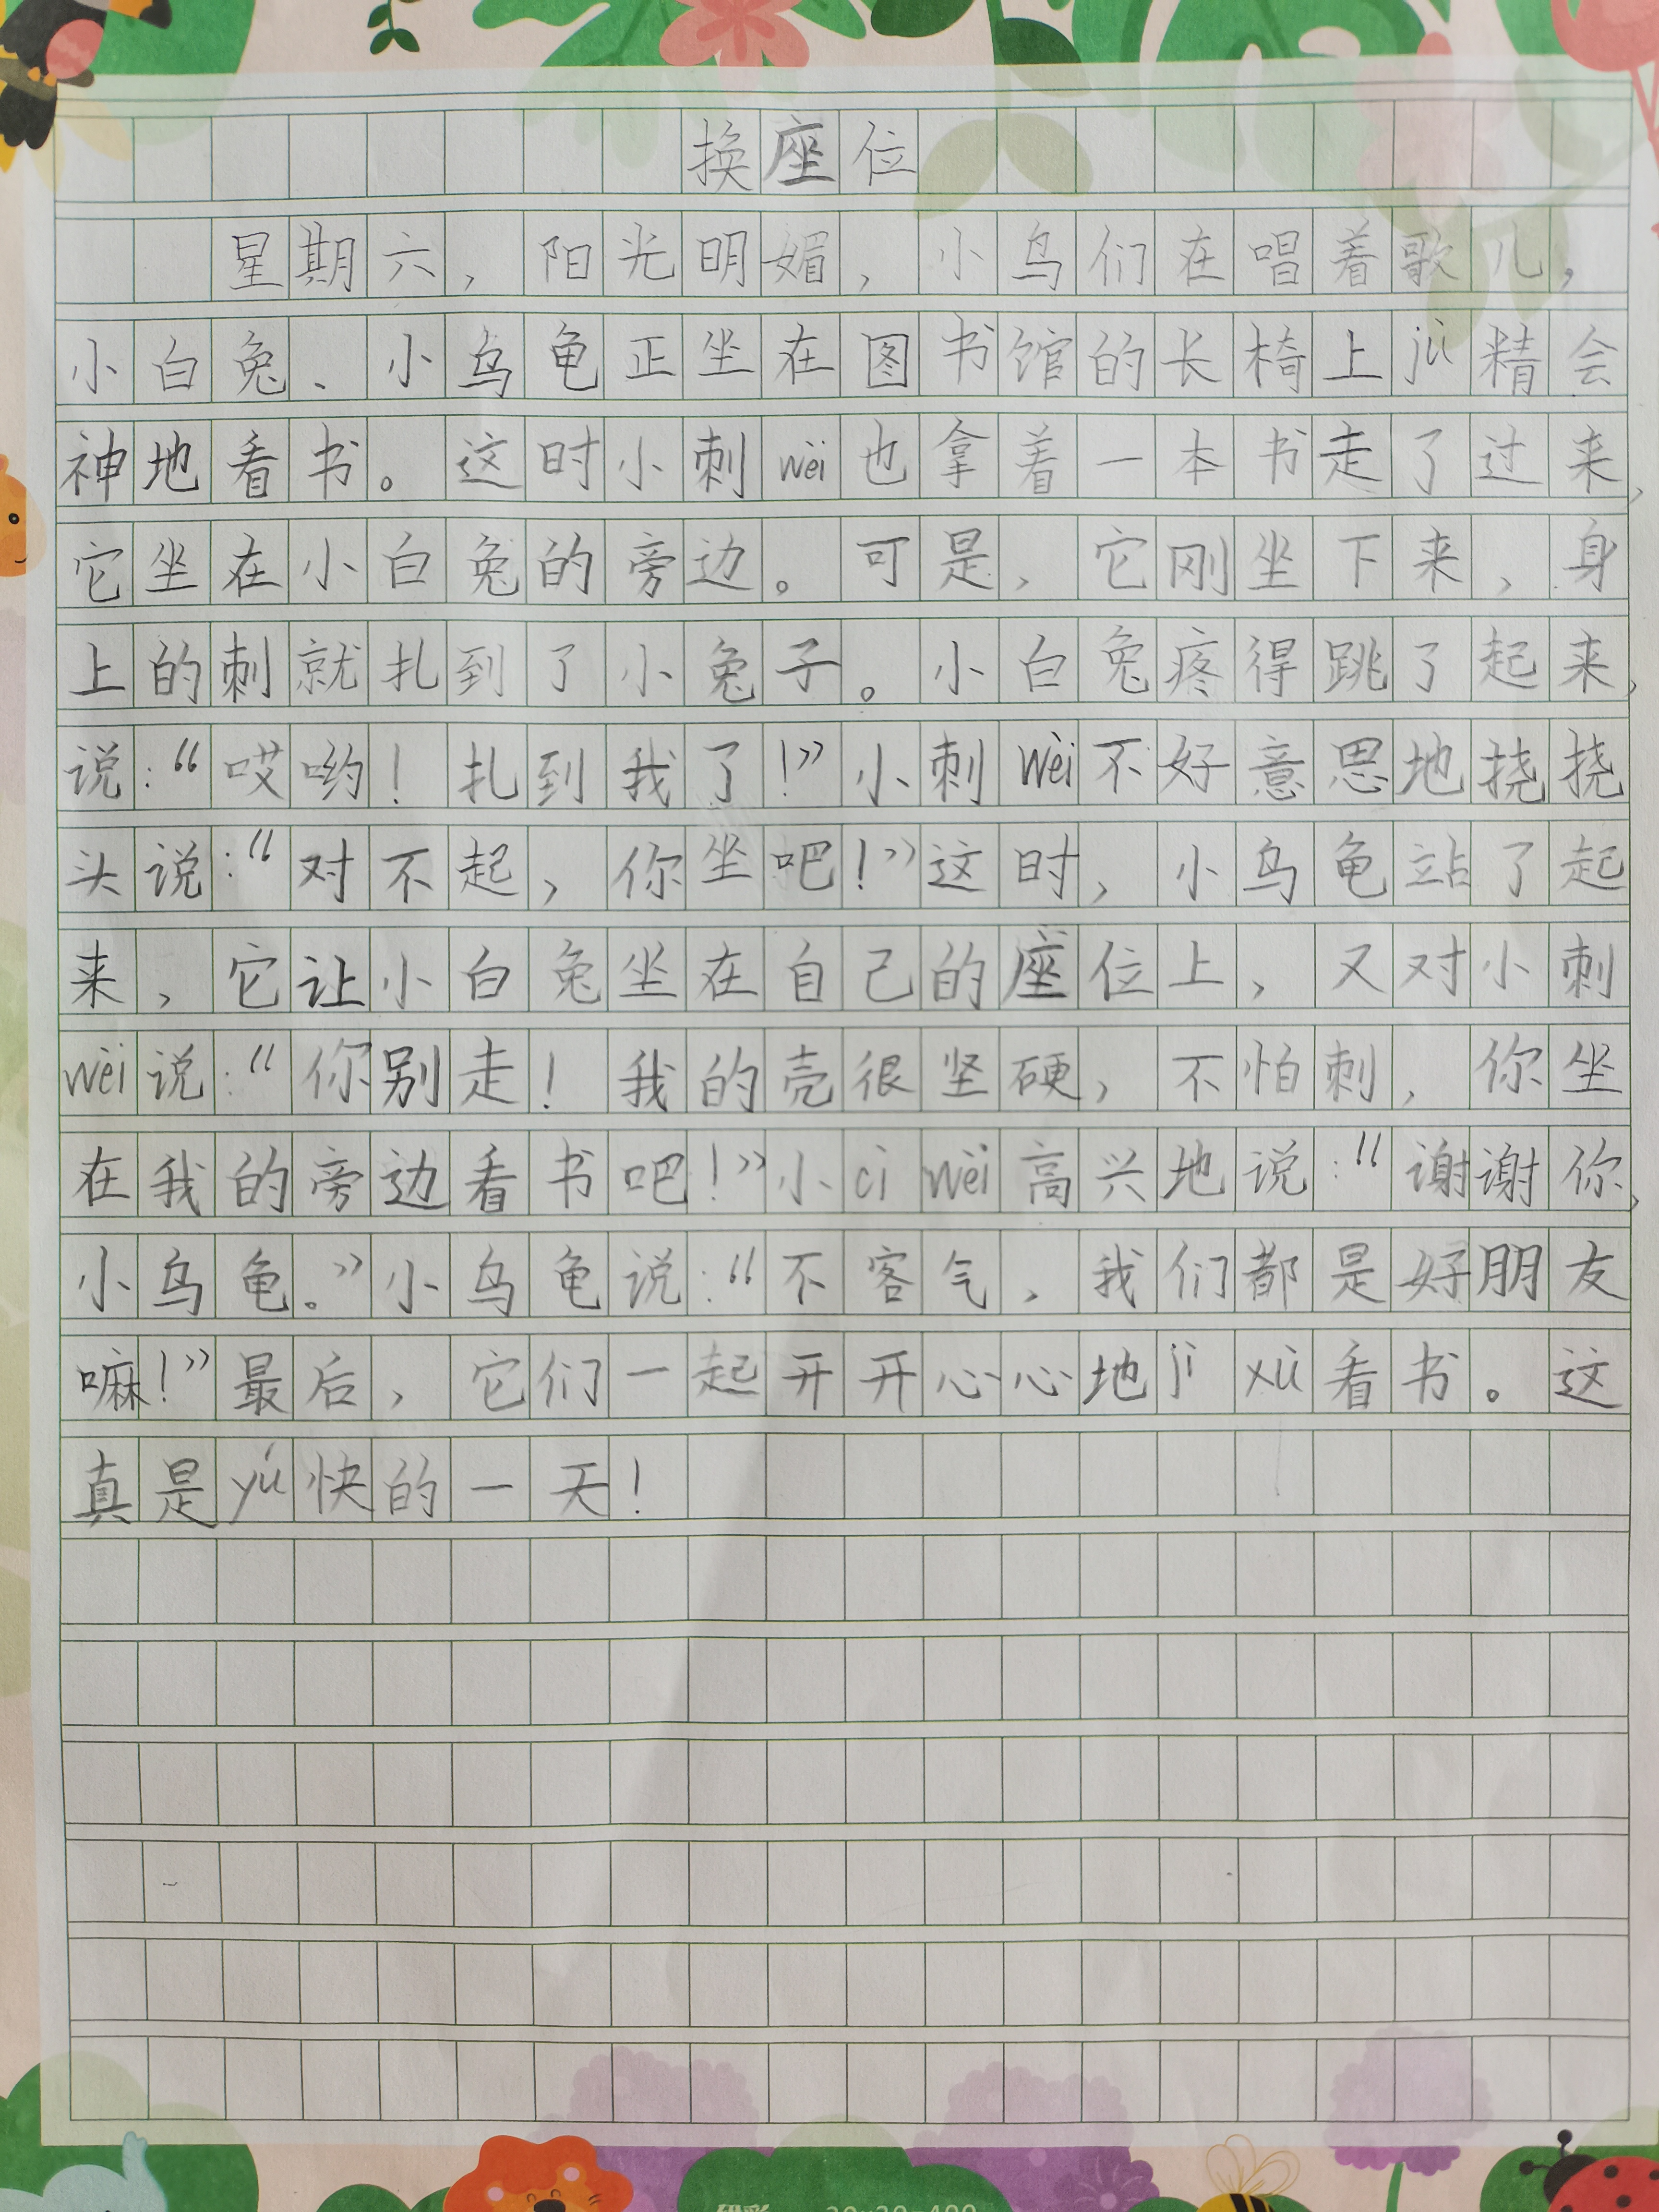 换座位
星期六，阳光明媚，小鸟们在唱着歌儿，
小白兔、小乌龟正坐在图书馆的长椅上jù精会
神地看书。这时小刺wèi也拿着一本书走了过来，
它坐在小白兔的旁边。可是，它刚坐下来，身
上的刺就扎到了小兔子。小白兔疼得跳了起来，
说：“哎哟！扎到我了！”小刺wèi不好意思地挠挠
头说：“对不起，你坐吧！”这时，小乌龟站了起
来，它让小白兔坐在自己的座位上，又对小刺
wèi说：“你别走！我的壳很坚硬，不怕刺，你坐
在我的旁边看书吧！”小cì wèi高兴地说：“谢谢你，
小乌龟。”小乌龟说：“不客气，我们都是好朋友
嘛！”最后，它们一起开开心心地jì xù看书。这
真是yú快的一天！